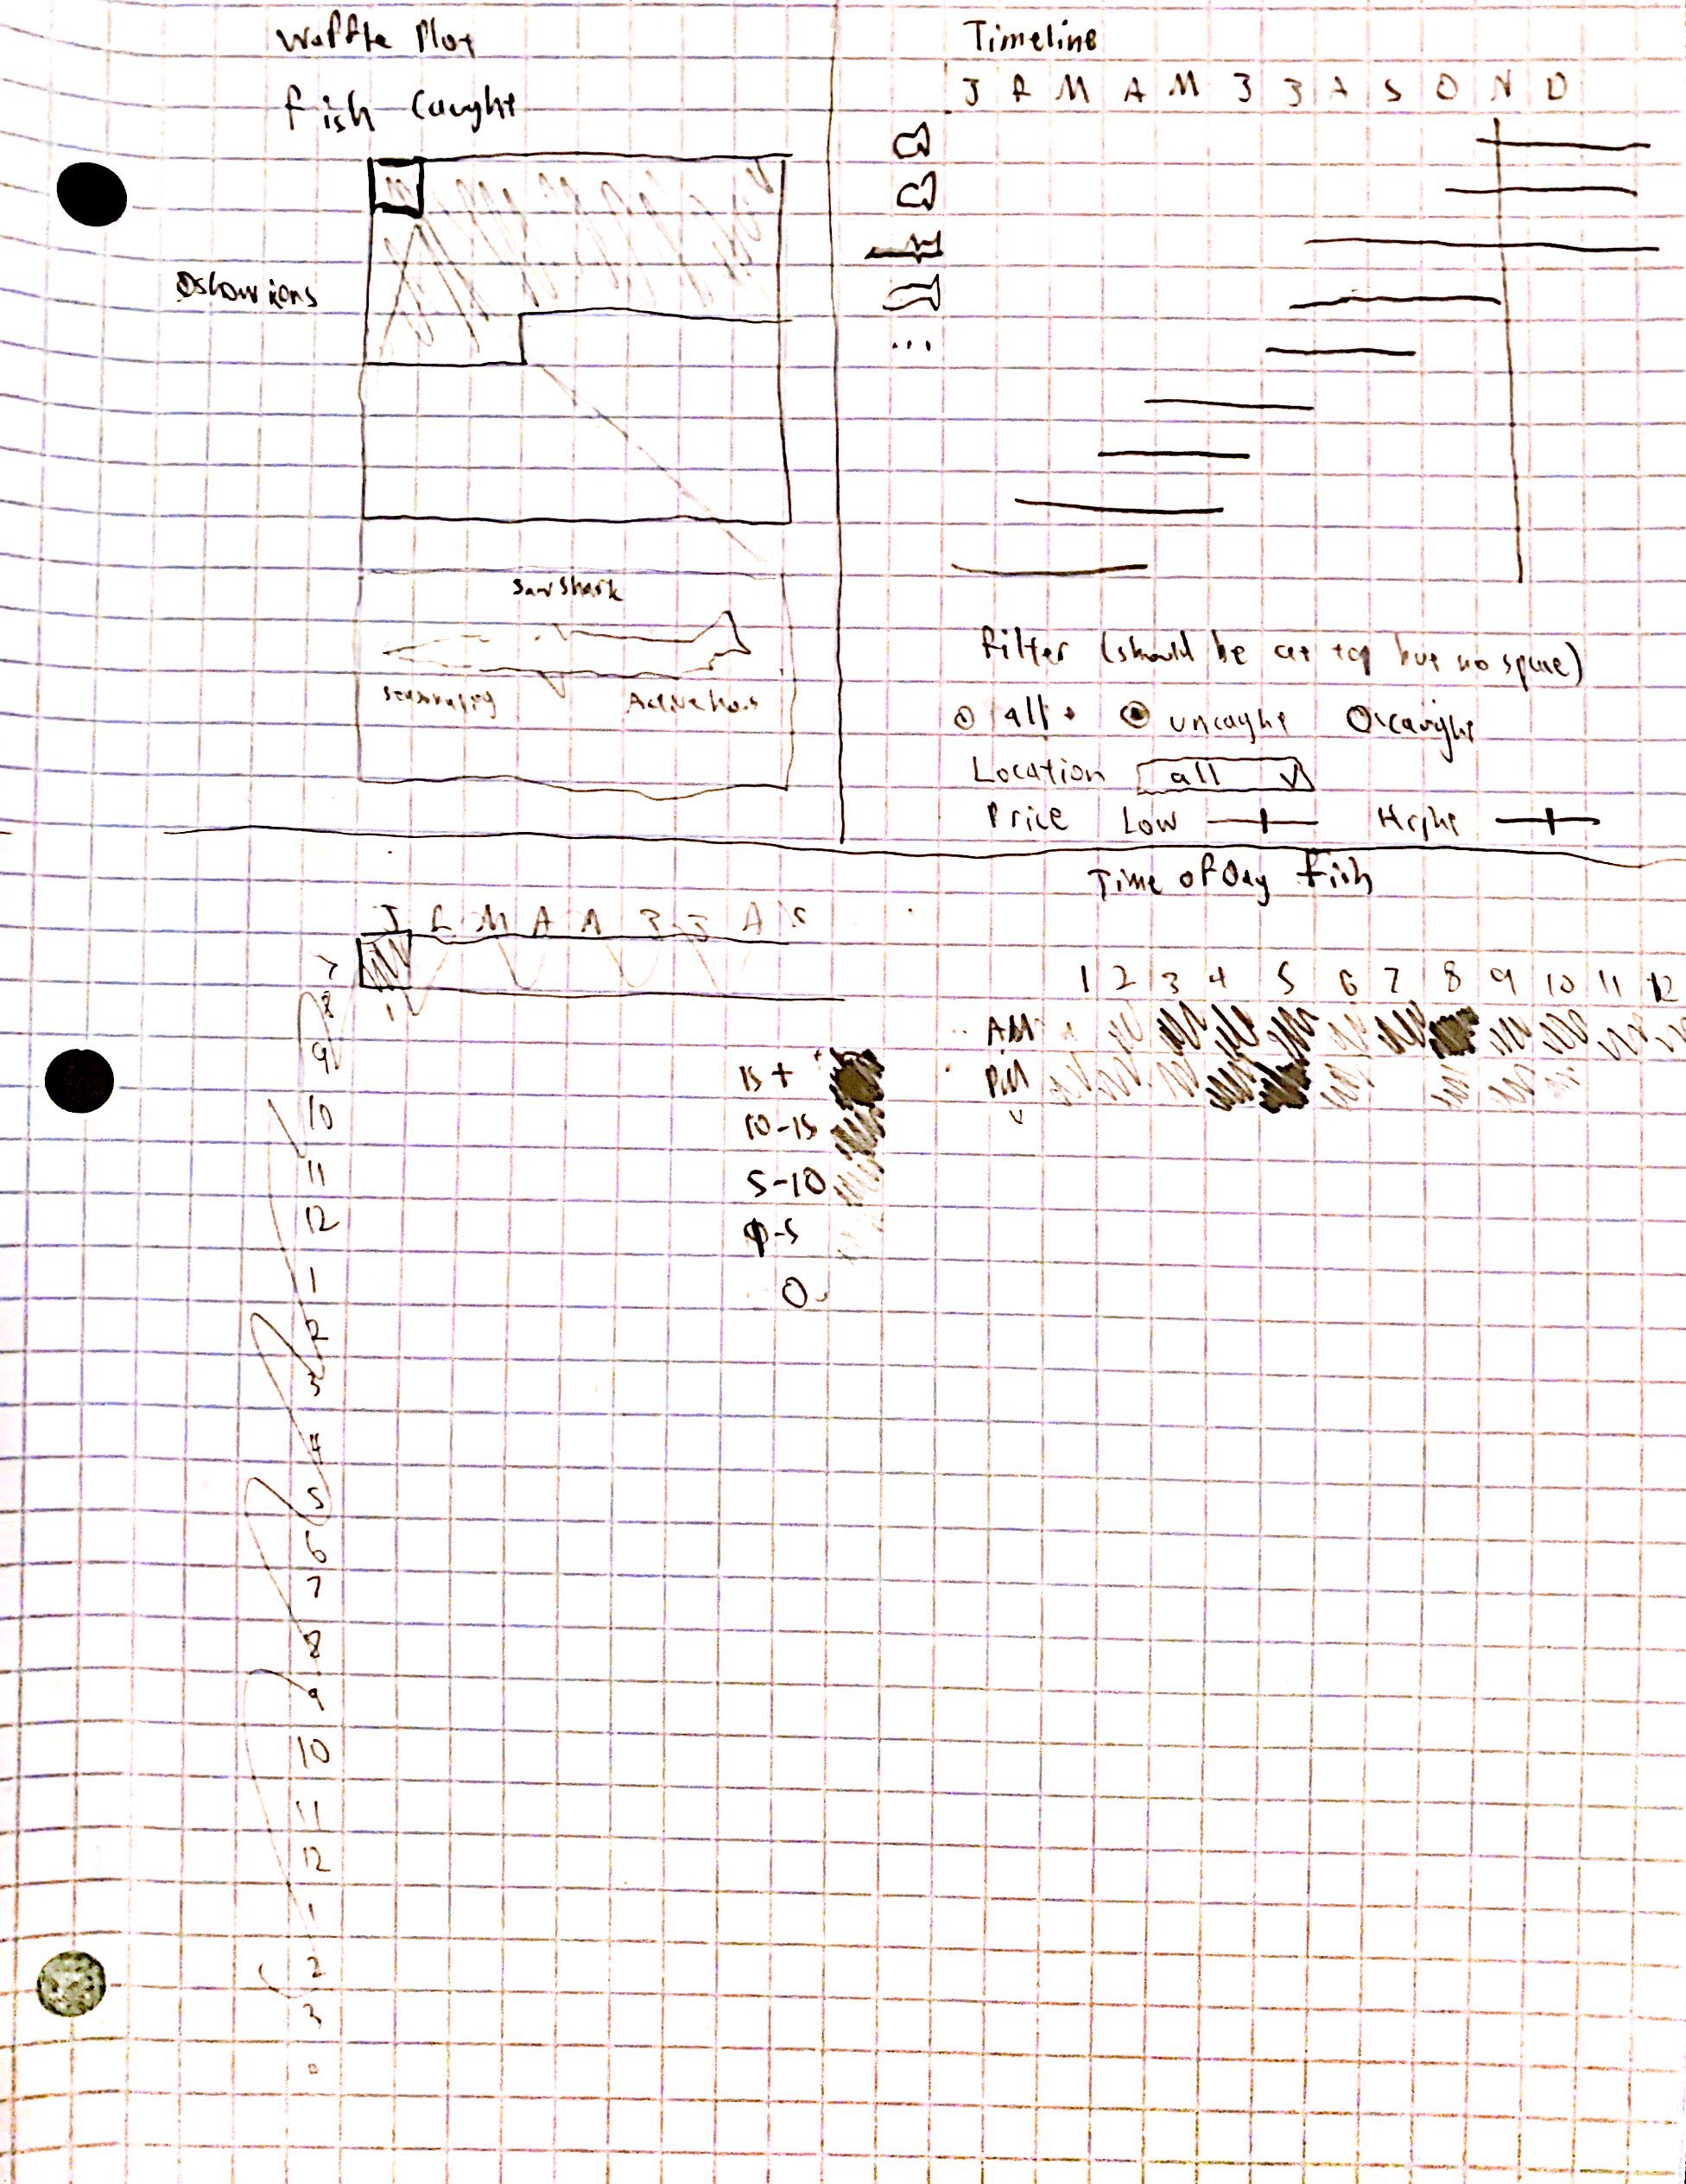 Waffle Plot
fish caught
show icons
Saw Shark
seasonality Active hours
Timeline
J F M A M J J A S O N D
...
filter (should be at top but no space)
all uncaught caught
Location all
Price Low High
Time of Day fish
J F M A M J J A S
7
8
9
10
11
12
1
2
3
4
5
6
7
8
9
10
11
12
1
2
3
15+
10-15
5-10
0
1 2 3 4 5 6 7 8 9 10 11 12
AM
PM